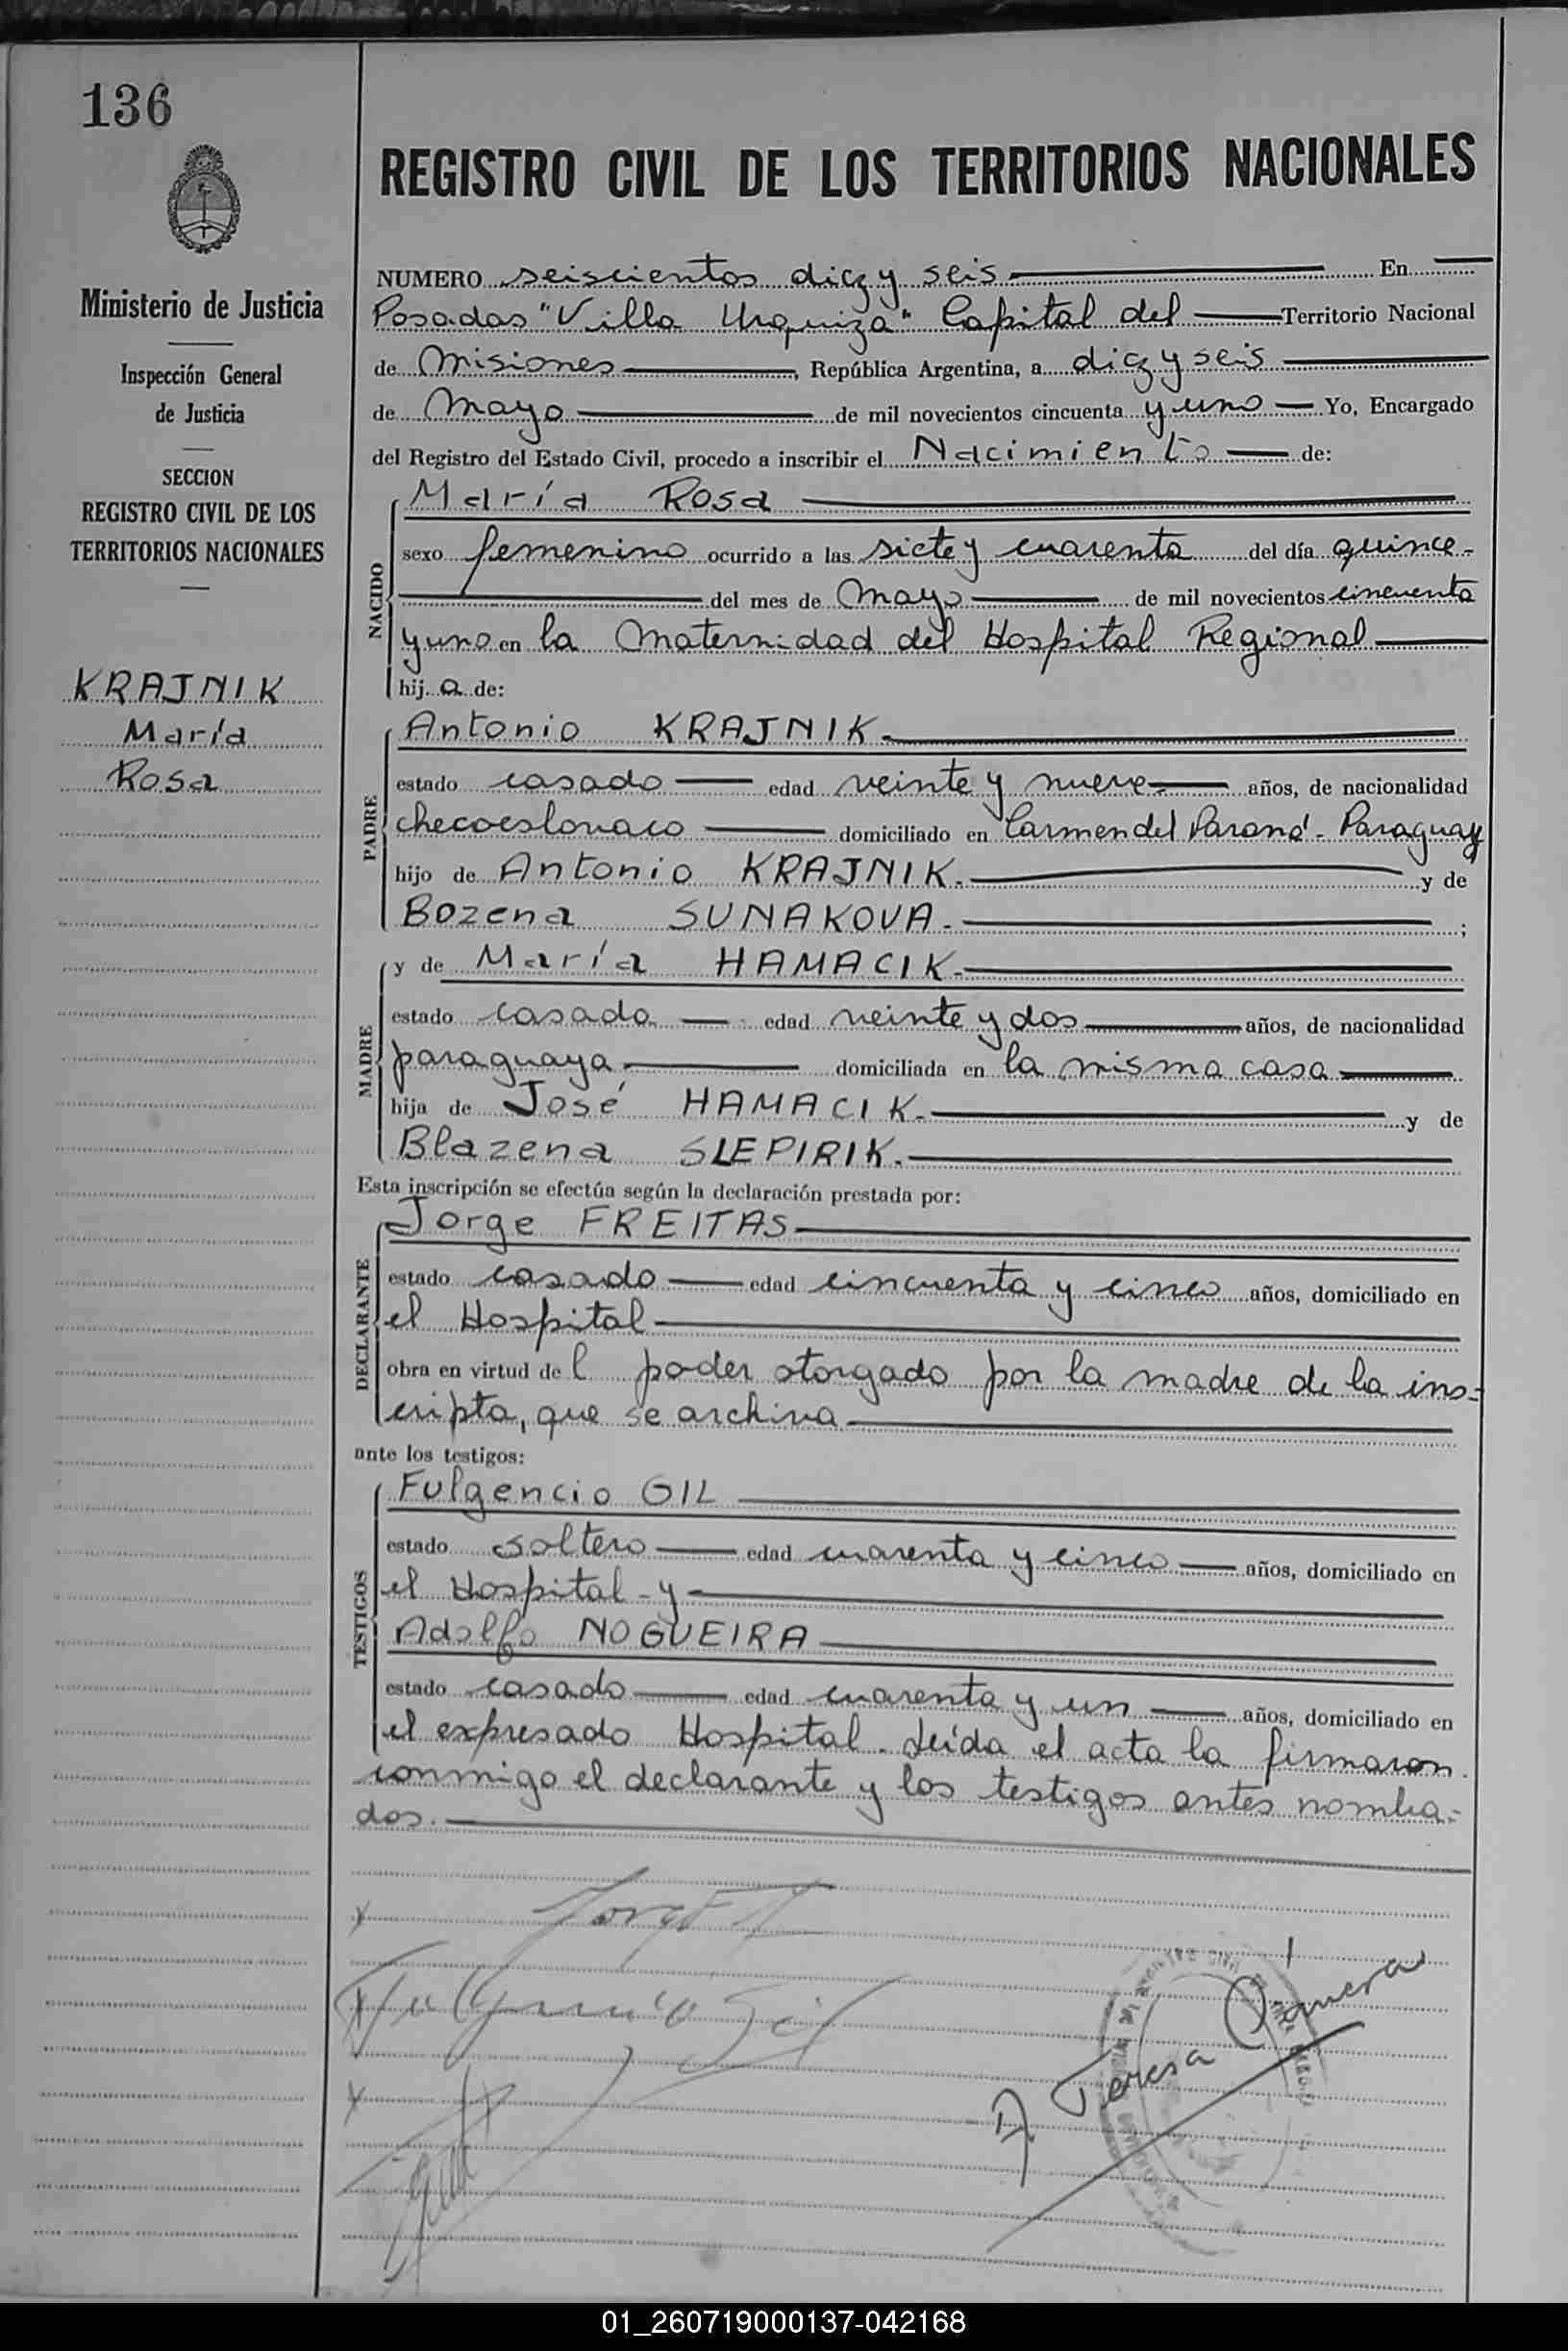 136
REGISTRO CIVIL DE LOS TERRITORIOS NACIONALES
Ministerio de Justicia
Inspección General
de Justicia
SECCION
REGISTRO CIVIL DE LOS
TERRITORIOS NACIONALES
KRAJNIK
María
Rosa
NUMERO seiscientos diez y seis En
Posadas "Villa Urquiza" Capital del Territorio Nacional
de Misiones, República Argentina, a diez y seis
de Mayo de mil novecientos cincuenta y uno Yo, Encargado
del Registro del Estado Civil, procedo a inscribir el Nacimiento de:
NACIDO
María Rosa
sexo femenino ocurrido a las siete y cuarenta del día quince
del mes de Mayo de mil novecientos cincuenta
y uno en la Maternidad del Hospital Regional
hij a de:
PADRE
Antonio KRAJNIK.
estado casado edad veinte y nueve años, de nacionalidad
checoeslovaco domiciliado en Carmen del Paraná - Paraguay
hijo de Antonio KRAJNIK. y de
Bozena SUNAKOVA. ;
MADRE
y de María HAMACIK.
estado casada edad veinte y dos años, de nacionalidad
paraguaya domiciliada en la misma casa
hija de José HAMACIK. y de
Blazena SLEPIRIK.
Esta inscripción se efectúa según la declaración prestada por:
DECLARANTE
Jorge FREITAS
estado casado edad cincuenta y cinco años, domiciliado en
el Hospital
obra en virtud de l poder otorgado por la madre de la ins=
cripta, que se archiva
ante los testigos:
TESTIGOS
Fulgencio GIL
estado soltero edad cuarenta y cinco años, domiciliado en
el Hospital - y
Adolfo NOGUEIRA
estado casado edad cuarenta y un años, domiciliado en
el expresado Hospital. Leída el acta la firmaron
conmigo el declarante y los testigos antes nombra=
dos.
Jorge F
Fulgencio Gil
Teresa
01_260719000137-042168